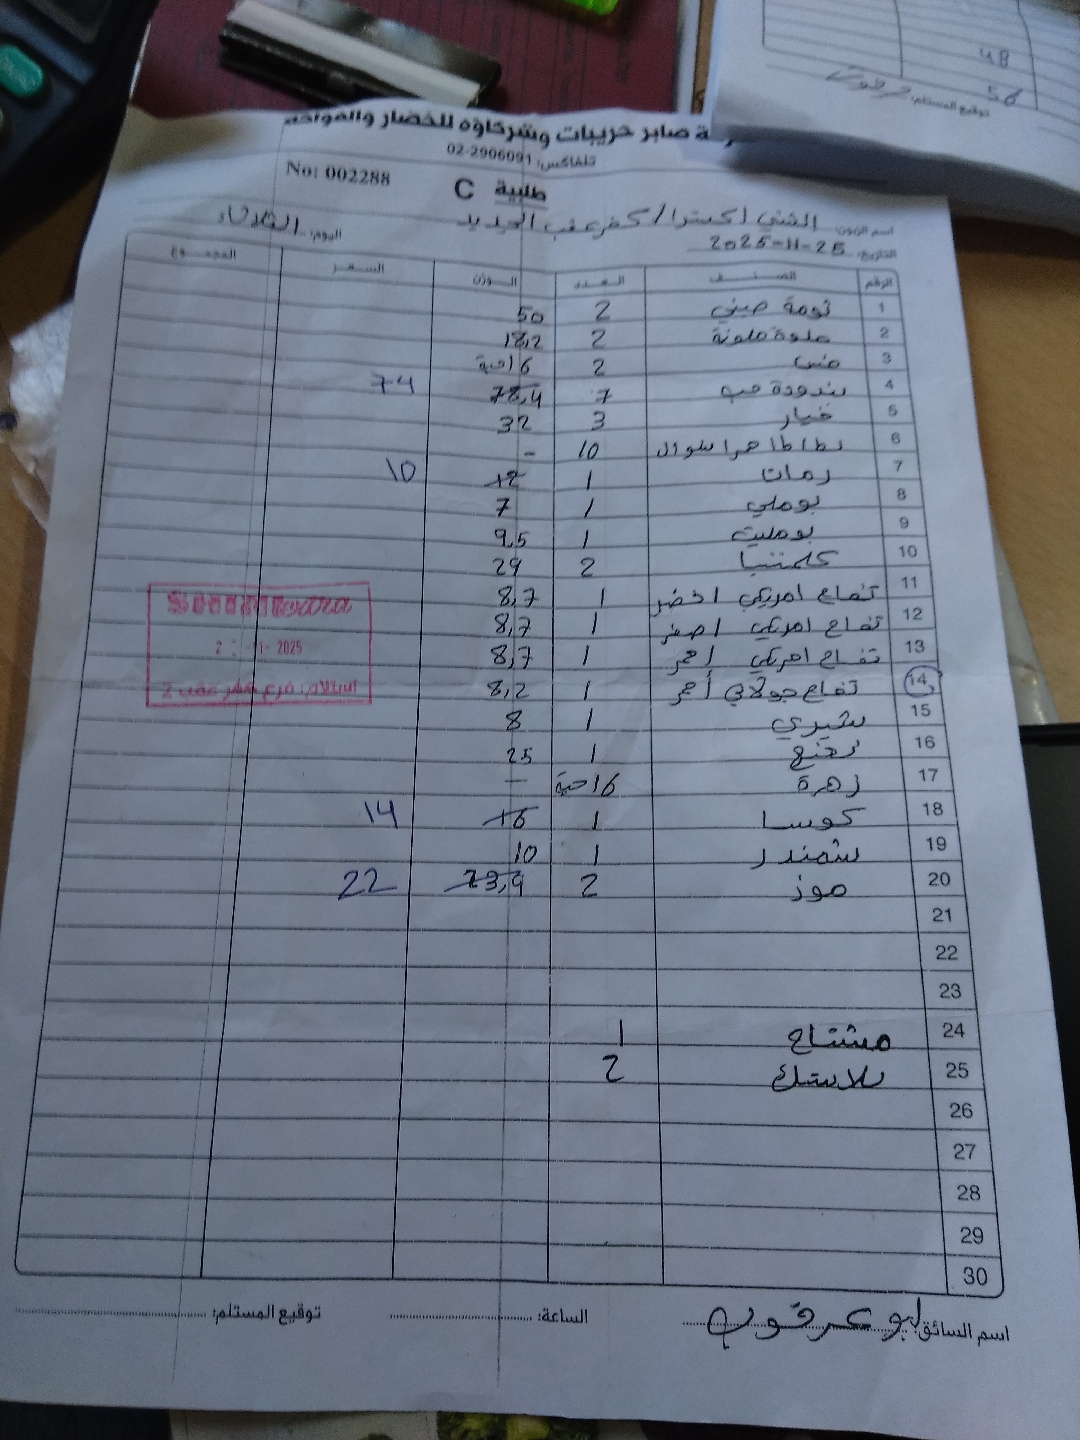 48
56
توقيع المستلم:
ة صابر حريبات وشركاؤه للخضار والفواكه
تلفاكس: 02-2906091
No: 002288
طلبية C
اسم الزبون: الشني اكسترا / كفر عقب الجديد اليوم: الثلاثاء
التاريخ: 2025-11-25
الرقم الصنف العدد الوزن السعر المجموع
1 ثومة صيني 2 50
2 حلوة ملونة 2 18,2
3 خس 2 16 حبة
4 بندورة حب 7 78,4 74
5 خيار 3 32
6 بطاطا حمرا شوال 10 -
7 رمان 1 12 10
8 بوملي 1 7
9 بومليت 1 9,5
10 كلمنتينا 2 29
11 تفاح امريكي اخضر 1 8,7
12 تفاح امريكي اصفر 1 8,7
13 تفاح امريكي احمر 1 8,7
14 تفاح جولاني أحمر 1 8,2
15 شيري 1 8
16 نعنع 1 25
17 زهرة 16 حبة -
18 كوسا 1 16 14
19 شمندر 1 10
20 موز 2 23,9 22
21
22
23
24 مشتاح 1
25 بلاستك 2
26
27
28
29
30
2025
استلام: فرع كفر عقب 2
اسم السائق: ابو عرقوب الساعة: توقيع المستلم: